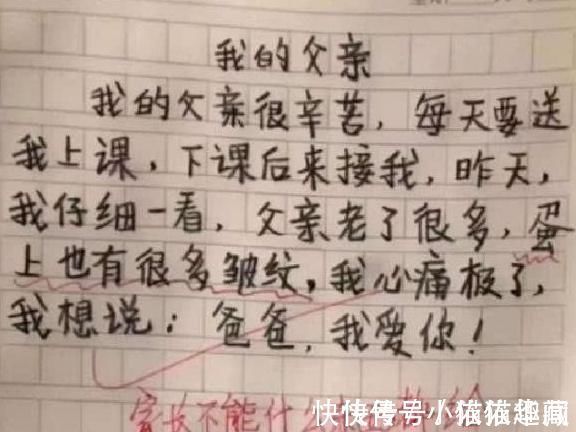 我的父亲
我的父亲很辛苦，每天要送
我上课，下课后来接我，昨天，
我仔细一看，父亲老了很多，蛋
上也有很多皱纹，我心痛极了，
我想说：爸爸，我爱你！
家长不能什么